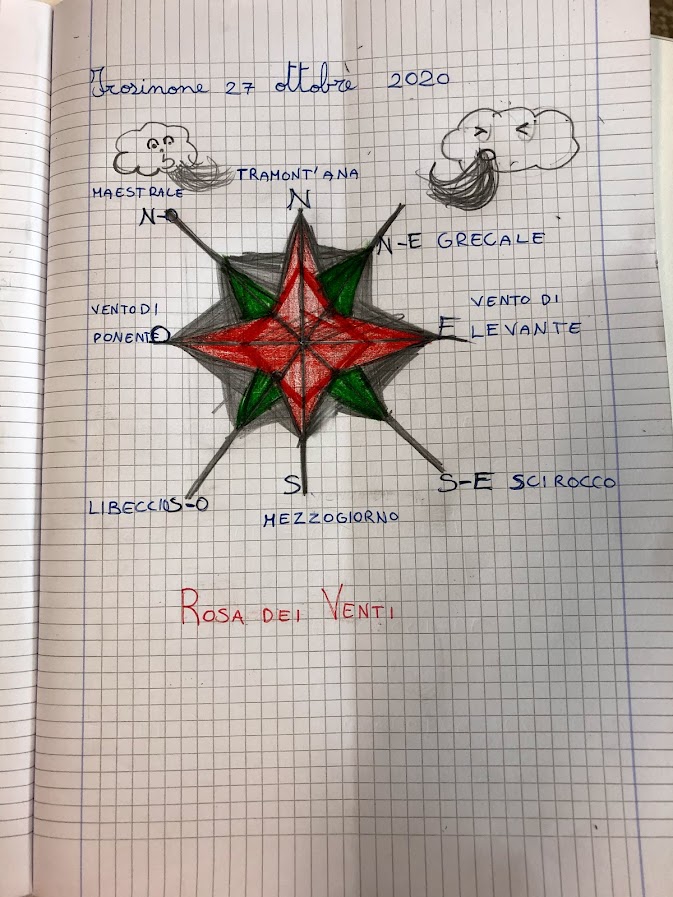 Frosinone 27 ottobre 2020
TRAMONT'ANA
MAESTRALE
N-O
N
N-E GRECALE
VENTO DI
PONENTE O
E VENTO DI
LEVANTE
LIBECCIO S-O
S
S-E SCIROCCO
MEZZOGIORNO
ROSA DEI VENTI